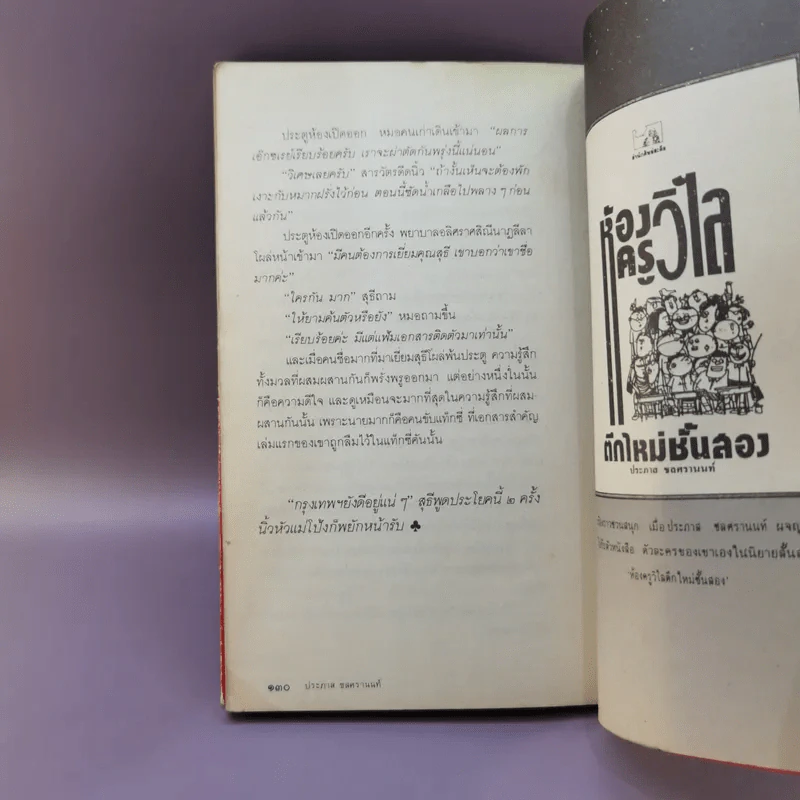 ประตูห้องเปิดออก หมอคนเก่าเดินเข้ามา “ผลการ
เอ๊กซเรย์เรียบร้อยครับ เราจะผ่าตัดกันพรุ่งนี้แน่นอน”
“วิเศษเลยครับ” สารวัตรดีดนิ้ว “ถ้างั้นเห็นจะต้องพัก
เงาะกับหมากฝรั่งไว้ก่อน ตอนนี้ซัดน้ำเกลือไปพลาง ๆ ก่อน
แล้วกัน”
ประตูห้องเปิดออกอีกครั้ง พยาบาลอลิศราศสิณีนาฎลีลา
โผล่หน้าเข้ามา “มีคนต้องการเยี่ยมคุณสุธี เขาบอกว่าเขาชื่อ
มากค่ะ”
“ใครกัน มาก” สุธีถาม
“ให้ยามค้นตัวหรือยัง” หมอถามขึ้น
“เรียบร้อยค่ะ มีแต่แฟ้มเอกสารติดตัวมาเท่านั้น”
และเมื่อคนชื่อมากที่มาเยี่ยมสุธีโผล่พ้นประตู ความรู้สึก
ทั้งมวลที่ผสมผสานกันก็พรั่งพรูออกมา แต่อย่างหนึ่งในนั้น
ก็คือความดีใจ และดูเหมือนจะมากที่สุดในความรู้สึกที่ผสม-
ผสานกันนั้น เพราะนายมากก็คือคนขับแท็กซี่ ที่เอกสารสำคัญ
เล่มแรกของเขาถูกลืมไว้ในแท็กซี่คันนั้น
“กรุงเทพฯยังดีอยู่แน่ ๆ” สุธีพูดประโยคนี้ ๒ ครั้ง
นิ้วหัวแม่โป้งก็พยักหน้ารับ ♣
๑๓๐ ประภาส ชลศรานนท์
ห้อง
ครูวิไล
ตึกใหม่ชั้นสอง
ประภาส ชลศรานนท์
เมื่อประภาส ชลศรานนท์ ผจญ
ตัวละครของเขาเองในนิยายสั้น
‘ห้องครูวิไลตึกใหม่ชั้นสอง’